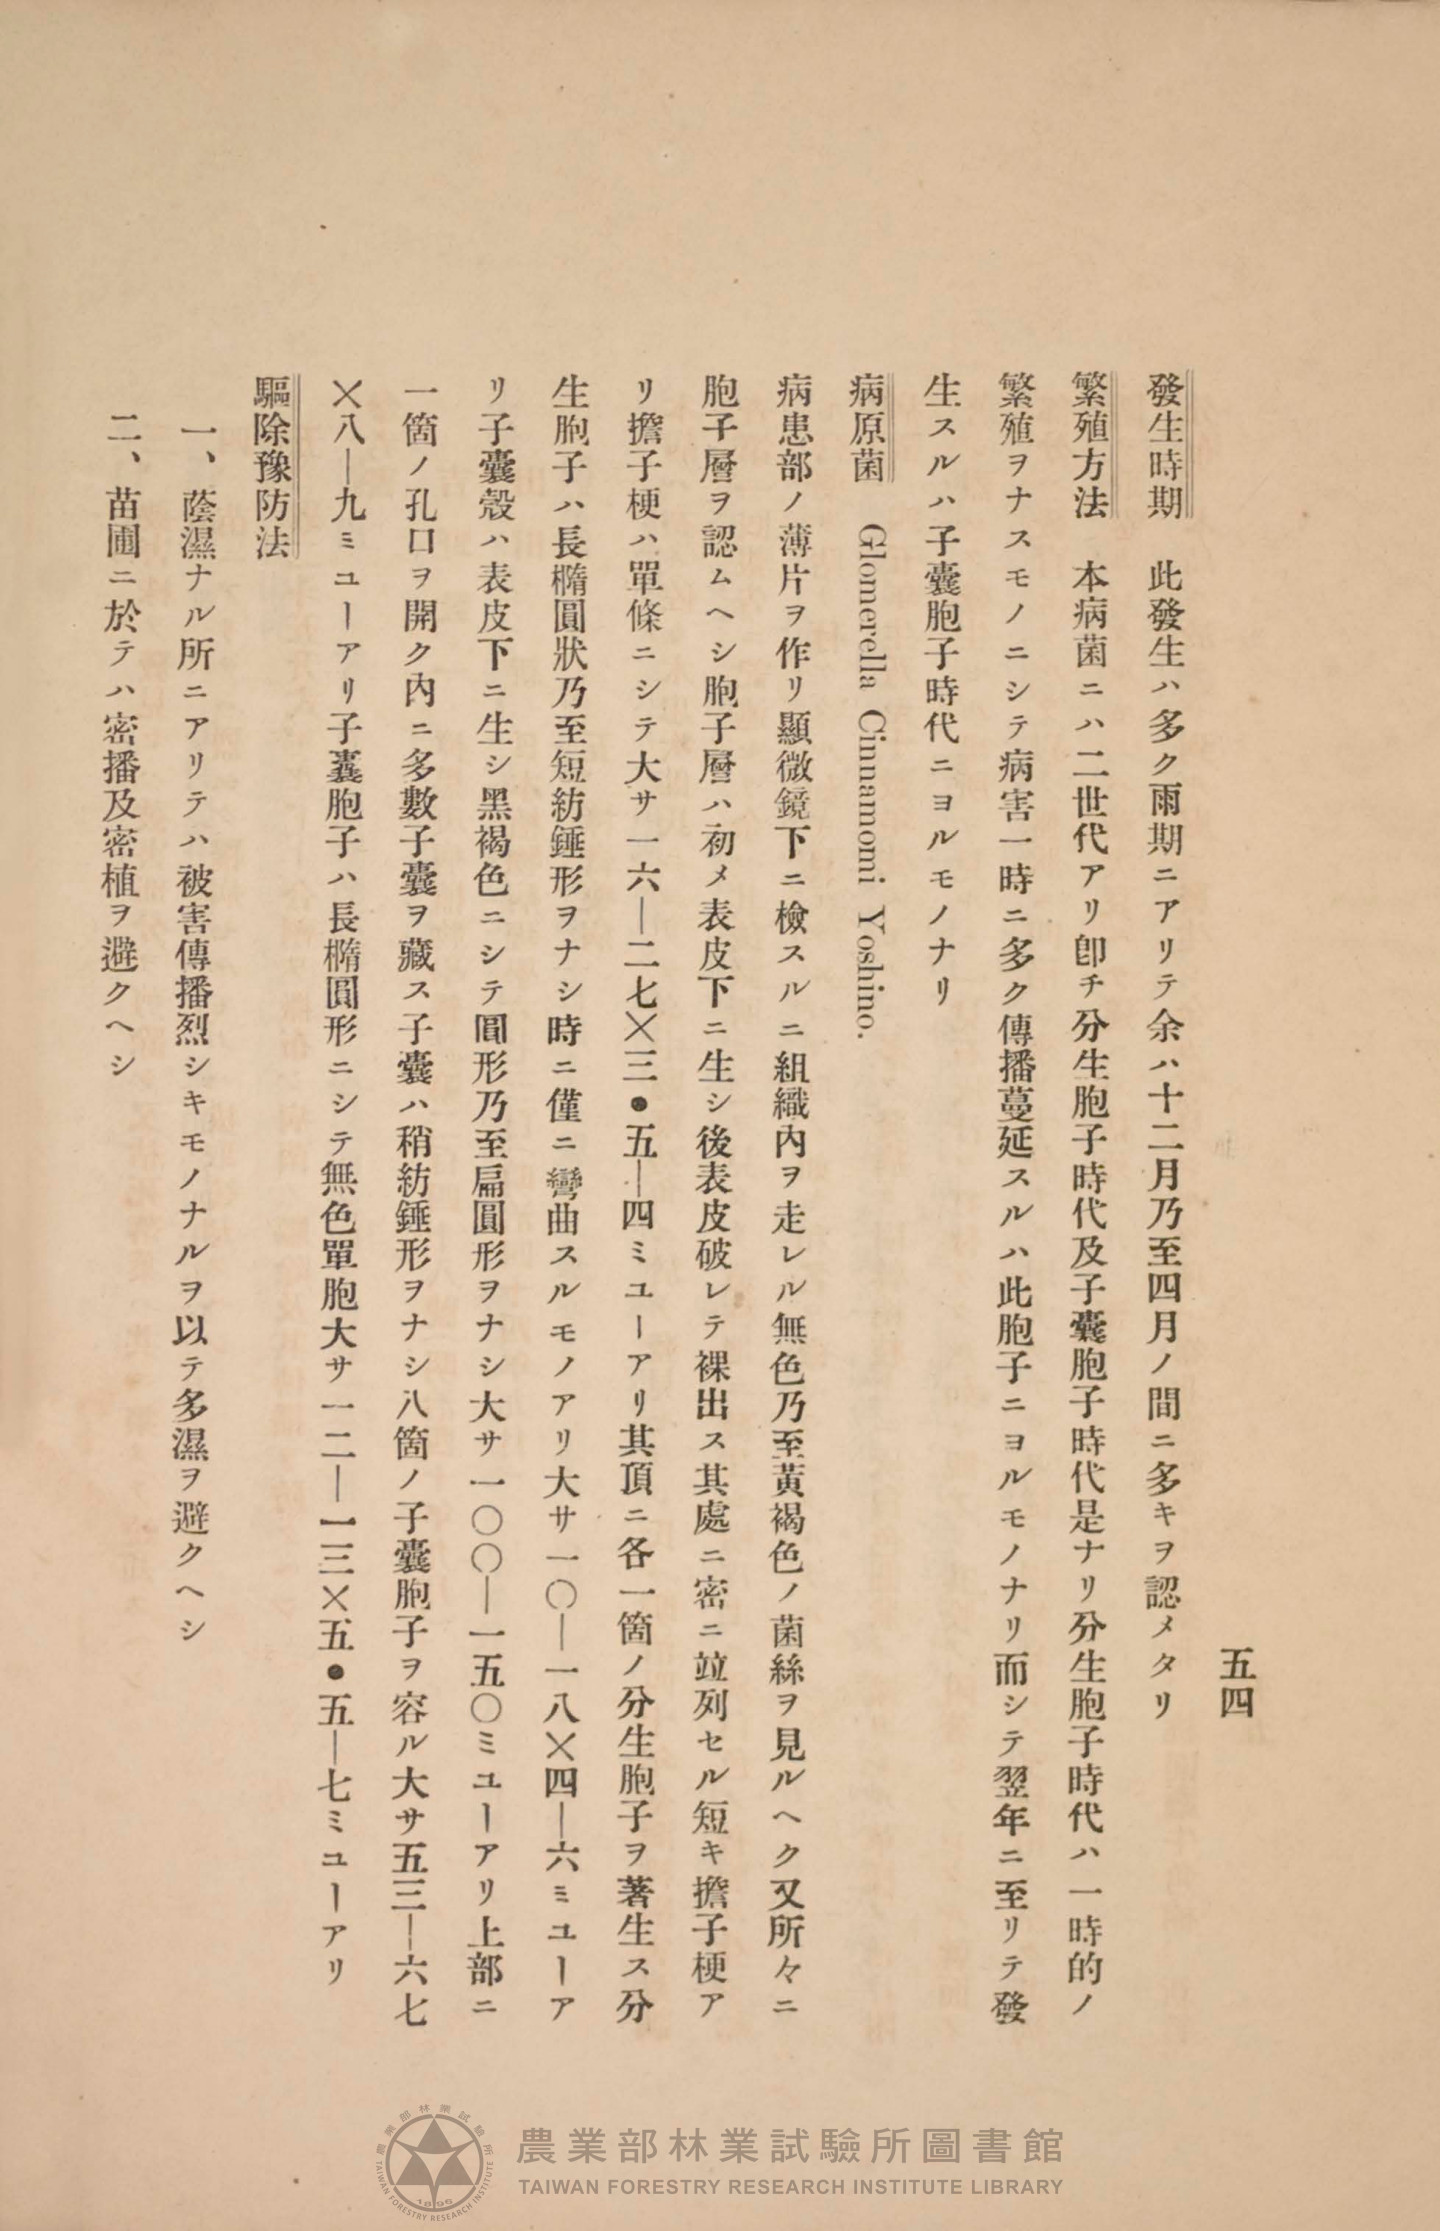 五四
發生時期　此發生ハ多ク雨期ニアリテ余ハ十二月乃至四月ノ間ニ多キヲ認メタリ
繁殖方法　本病菌ニハ二世代アリ卽チ分生胞子時代及子囊胞子時代是ナリ分生胞子時代ハ一時的ノ
繁殖ヲナスモノニシテ病害一時ニ多ク傳播蔓延スルハ此胞子ニヨルモノナリ而シテ翌年ニ至リテ發
生スルハ子囊胞子時代ニヨルモノナリ
病原菌　Glomerella Cinnamomi Yoshino.
病患部ノ薄片ヲ作リ顯微鏡下ニ檢スルニ組織內ヲ走レル無色乃至黃褐色ノ菌絲ヲ見ルヘク又所々ニ
胞子層ヲ認ムヘシ胞子層ハ初メ表皮下ニ生シ後表皮破レテ裸出ス其處ニ密ニ竝列セル短キ擔子梗ア
リ擔子梗ハ單條ニシテ大サ一六—二七×三•五—四ミユーアリ其頂ニ各一箇ノ分生胞子ヲ著生ス分
生胞子ハ長橢圓狀乃至短紡錘形ヲナシ時ニ僅ニ彎曲スルモノアリ大サ一〇—一八×四—六ミユーア
リ子囊殼ハ表皮下ニ生シ黑褐色ニシテ圓形乃至扁圓形ヲナシ大サ一〇〇—一五〇ミユーアリ上部ニ
一箇ノ孔口ヲ開ク內ニ多數子囊ヲ藏ス子囊ハ稍紡錘形ヲナシ八箇ノ子囊胞子ヲ容ル大サ五三—六七
×八—九ミユーアリ子囊胞子ハ長橢圓形ニシテ無色單胞大サ一二—一三×五•五—七ミユーアリ
驅除豫防法
一、蔭濕ナル所ニアリテハ被害傳播烈シキモノナルヲ以テ多濕ヲ避クヘシ
二、苗圃ニ於テハ密播及密植ヲ避クヘシ
農業部林業試驗所
TAIWAN FORESTRY RESEARCH INSTITUTE
1896
農業部林業試驗所圖書館
TAIWAN FORESTRY RESEARCH INSTITUTE LIBRARY